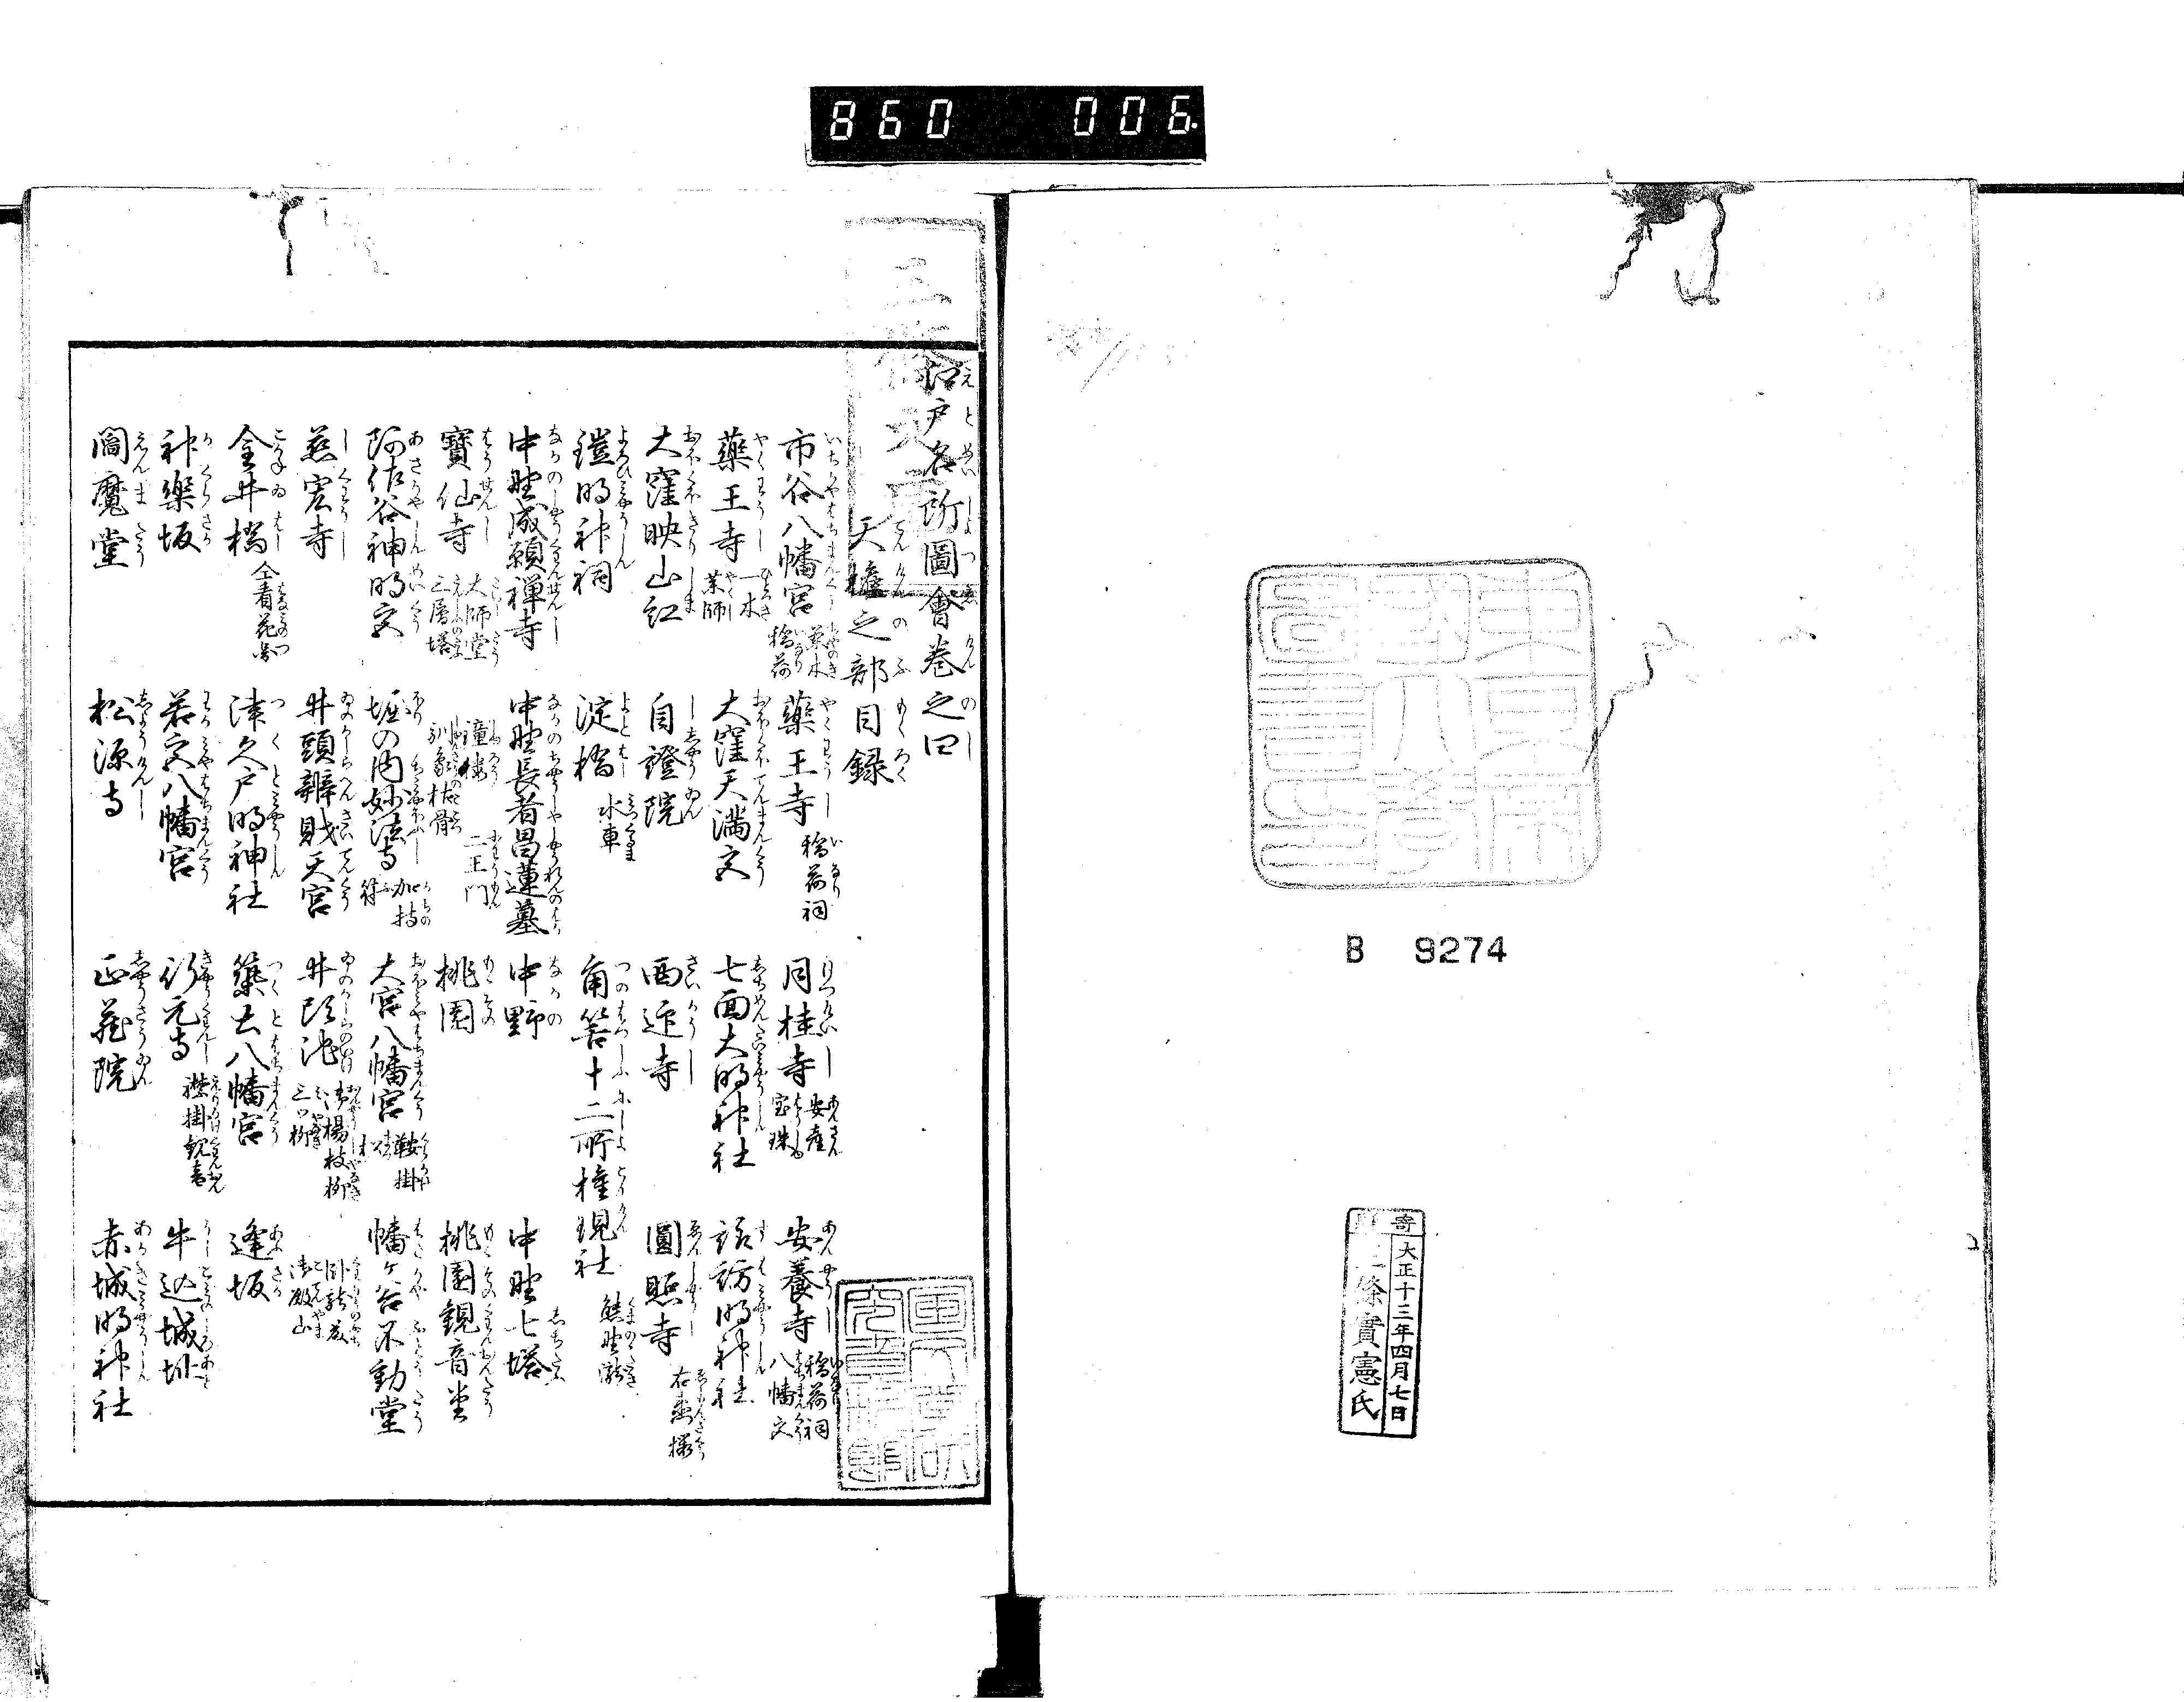 860 006.
B 9274
寄
大正十三年四月七日
條實憲氏
江戸名所圖會巻之四
天權之部目録
市谷八幡宮 茶木稲荷
藥王寺 稲荷祠
月桂寺 安産宝珠
安養寺 稲荷祠 八幡宮
藥王寺 一木薬師
大窪天満宮
七面大明神社
諏訪明神社
大窪映山紅
自證院
西迎寺
圓照寺 右衛門桜
鎧明神祠
淀橋 水車
角筈十二所権現社 熊野瀧
中野成願禅寺
中野長者昌蓮墓
中野
中野七塔
寶仙寺 大師堂 三層塔
鐘楼 馴象枯骨 二王門
桃園
桃園観音堂
阿佐谷神明宮
堀の内妙法寺 加持符
大宮八幡宮 鞍掛松
幡ヶ谷不動堂
慈宏寺
井頭辨財天宮
井頭池 御楊枝柳 三ツ柳
御殿山
金井橋 金井橋看花
津久戸明神社
築土八幡宮
逢坂
神樂坂
若宮八幡宮
行元寺 襟掛観音
牛込城址
閻魔堂
松源寺
正蔵院
赤城明神社